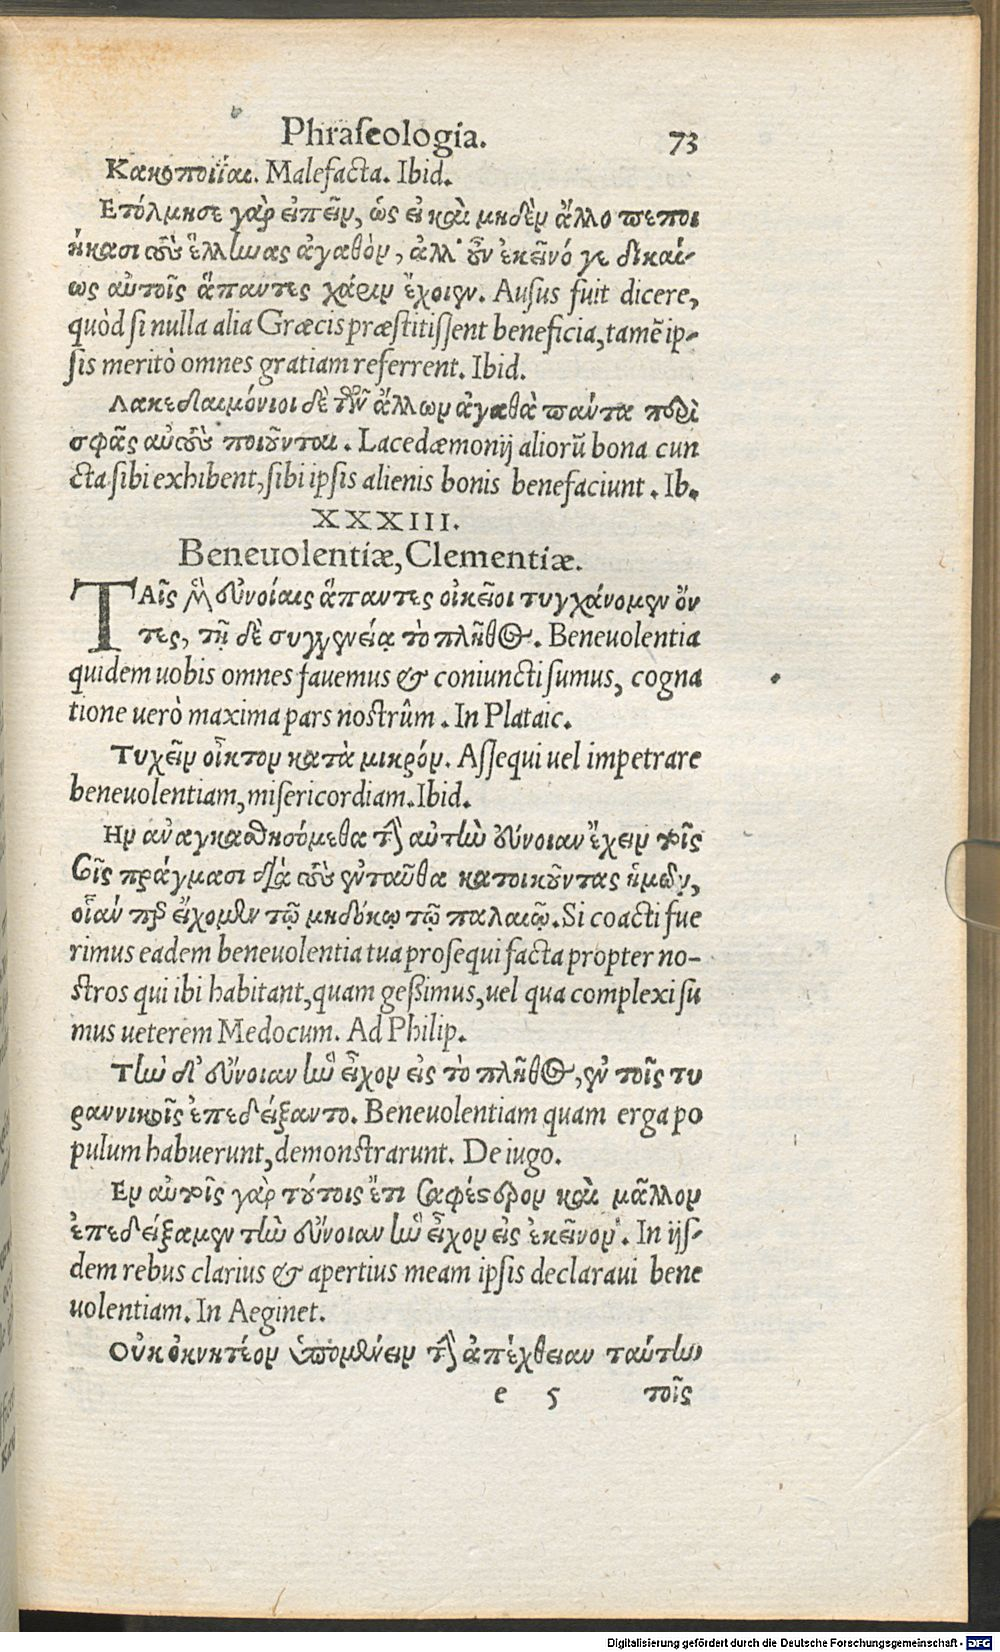 Phraseologia. 73
Κακοποιΐαι. Malefacta. Ibid.
Ετόλμησε γὰρ εἰπεῖν, ὡς εἰ καὶ μηδὲν ἄλλο πεποι
ήκασι τοὺς ἕλληνας ἀγαθὸν, ἀλλ' οὖν ἐκεῖνό γε δικαί-
ως αὐτοῖς ἅπαντες χάριν ἔχοιεν. Ausus fuit dicere,
quòd si nulla alia Græcis præstitissent beneficia, tamē ip-
sis meritò omnes gratiam referrent. Ibid.
Λακεδαιμόνιοι δὲ τῶν ἄλλων ἀγαθὰ πάντα περὶ
σφᾶς αὐτοὺς ποιοῦνται. Lacedæmonij aliorū bona cun
cta sibi exhibent, sibi ipsis alienis bonis benefaciunt. Ib.
XXXIII.
Beneuolentiæ, Clementiæ.
ΤΑῖς μὲν εὐνοίαις ἅπαντες οἰκεῖοι τυγχάνομεν ὄν
τες, τῇ δὲ συγγενείᾳ τὸ πλῆθος. Beneuolentia
quidem uobis omnes fauemus & coniuncti sumus, cogna
tione uerò maxima pars nostrûm. In Plataic.
Τυχεῖν οἶκτον κατὰ μικρόν. Assequi uel impetrare
beneuolentiam, misericordiam. Ibid.
Ην ἀναγκασθησόμεθα τὴν αὐτὴν εὔνοιαν ἔχειν τοῖς
σοῖς πράγμασι διὰ τοὺς ἐνταῦθα κατοικοῦντας ἡμῶν,
οἵαν περ εἴχομεν τῷ μηδόκῳ τῷ παλαιῷ. Si coacti fue
rimus eadem beneuolentia tua prosequi facta propter no-
stros qui ibi habitant, quam gessimus, uel qua complexi su
mus ueterem Medocum. Ad Philip.
Τὴν δ' εὔνοιαν ἣν εἶχον εἰς τὸ πλῆθος, ἐν τοῖς τυ
ραννικοῖς ἐπεδείξαντο. Beneuolentiam quam erga po
pulum habuerunt, demonstrarunt. De iugo.
Εν αὐτοῖς γὰρ τούτοις ἔτι σαφέστερον καὶ μᾶλλον
ἐπεδείξαμεν τὴν εὔνοιαν ἣν εἶχον εἰς ἐκεῖνον. In ijs-
dem rebus clarius & apertius meam ipsis declaraui bene
uolentiam. In Aeginet.
Οὐκ ὀκνητέον ὑπομένειν τὴν ἀπέχθειαν ταύτην
e 5 τοῖς
Digitalisierung gefördert durch die Deutsche Forschungsgemeinschaft - DFG